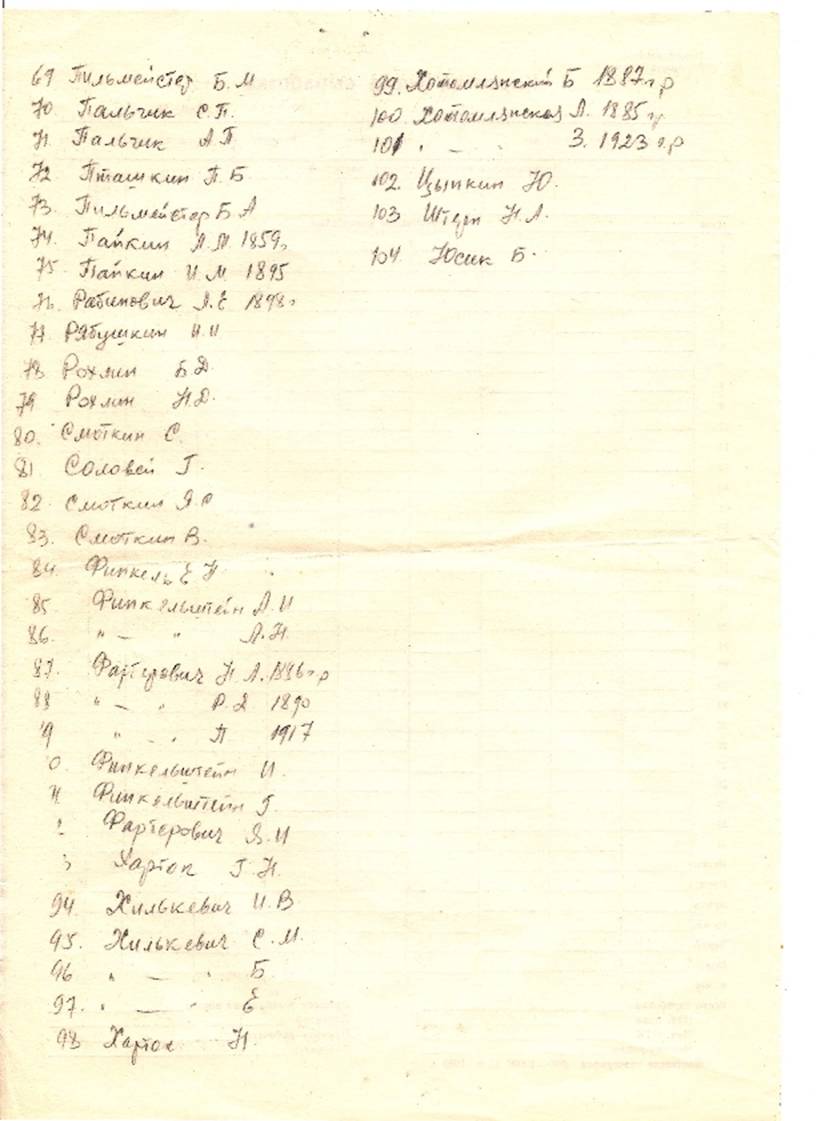 69 Пильмейстер Б. М
70 Пальчик С. П.
71 Пальчик А П
72 Пташкин П. Б
73. Пильмейстер Б. А
74. Пайкин А. М. 1859г
75 Пайкин И. М. 1895
76. Рабинович А. Е 1898г
77 Рябушкин И. И
78 Рохлин Б Д
79 Рохлин Н. Д.
80. Смоткин С.
81 Соловей Г.
82 Смоткин Я. С
83. Смоткин В.
84. Финкель Е Н
85 Финкельштейн А. И
86. " — " А. Н.
87. Фартерович Н А. 1886 г. р
88 " — " Р. 1890
9 " — " П 1917
0. Финкельштейн И.
Финкельштейн Г.
Фартерович Я. И
Харток Г. Н.
94. Хилькевич И. В
95. Хилькевич С. М.
96 " — " Б
97. " — " Е
98 Харток Н.
99. Хотомлянский Б 1887 г. р
100. Хотомлянская Л. 1885 г.
101 " — " З. 1923 г. р
102. Цыпкин Ю.
103 Штерн Н. А.
104. Юсик Б.